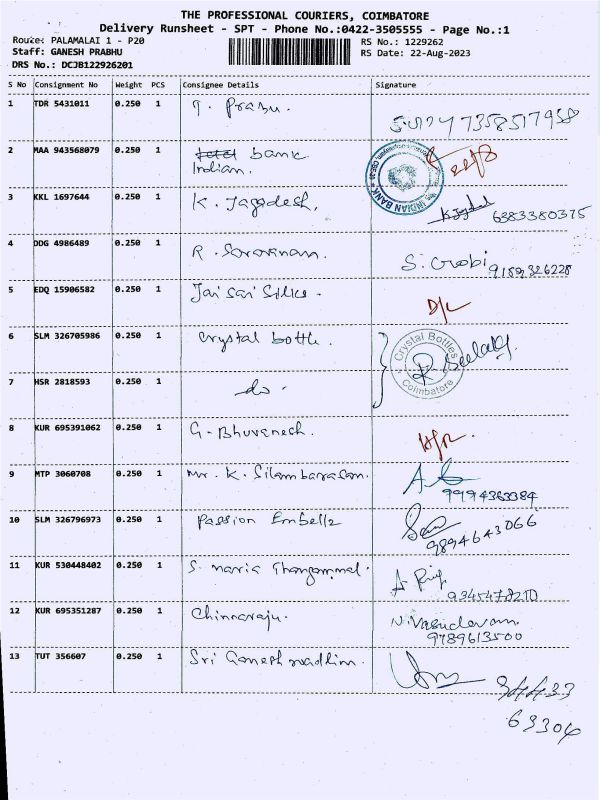 THE PROFESSIONAL COURIERS, COIMBATORE
Delivery Runsheet - SPT - Phone No.:0422-3505555 - Page No.:1
Route: PALAMALAI 1 - P20
RS No.: 1229262
Staff: GANESH PRABHU
RS Date: 22-Aug-2023
DRS No.: DCJB122926201
S No Consignment No Weight PCS Consignee Details Signature
1 TDR 5431011 0.250 1 T. Prabu. 7358517958
2 MAA 943568079 0.250 1 bank
Indian.
INDIAN BANK
3 KKL 1697644 0.250 1 K. Jagadesh.
6383380375
4 DDG 4986489 0.250 1 R. Saravanan. S. Gobi
9189326228
5 EDQ 15906582 0.250 1 Jai Sai Silks. D/L
6 SLM 326705986 0.250 1 Crystal bottle.
Crystal Bottles
Coimbatore
7 HSR 2818593 0.250 1 do.
8 KUR 695391062 0.250 1 G. Bhuvanesh.
9 MTP 3060708 0.250 1 Mr. K. Silambarasan.
9994363384
10 SLM 326796973 0.250 1 Passion Embellz
9894643066
11 KUR 530448402 0.250 1 S. Maria Thangammal.
9345478210
12 KUR 695351287 0.250 1 Chinnaraju. N. Vasudevan.
9789613500
13 TUT 356607 0.250 1 Sri Ganesh
94433
69304